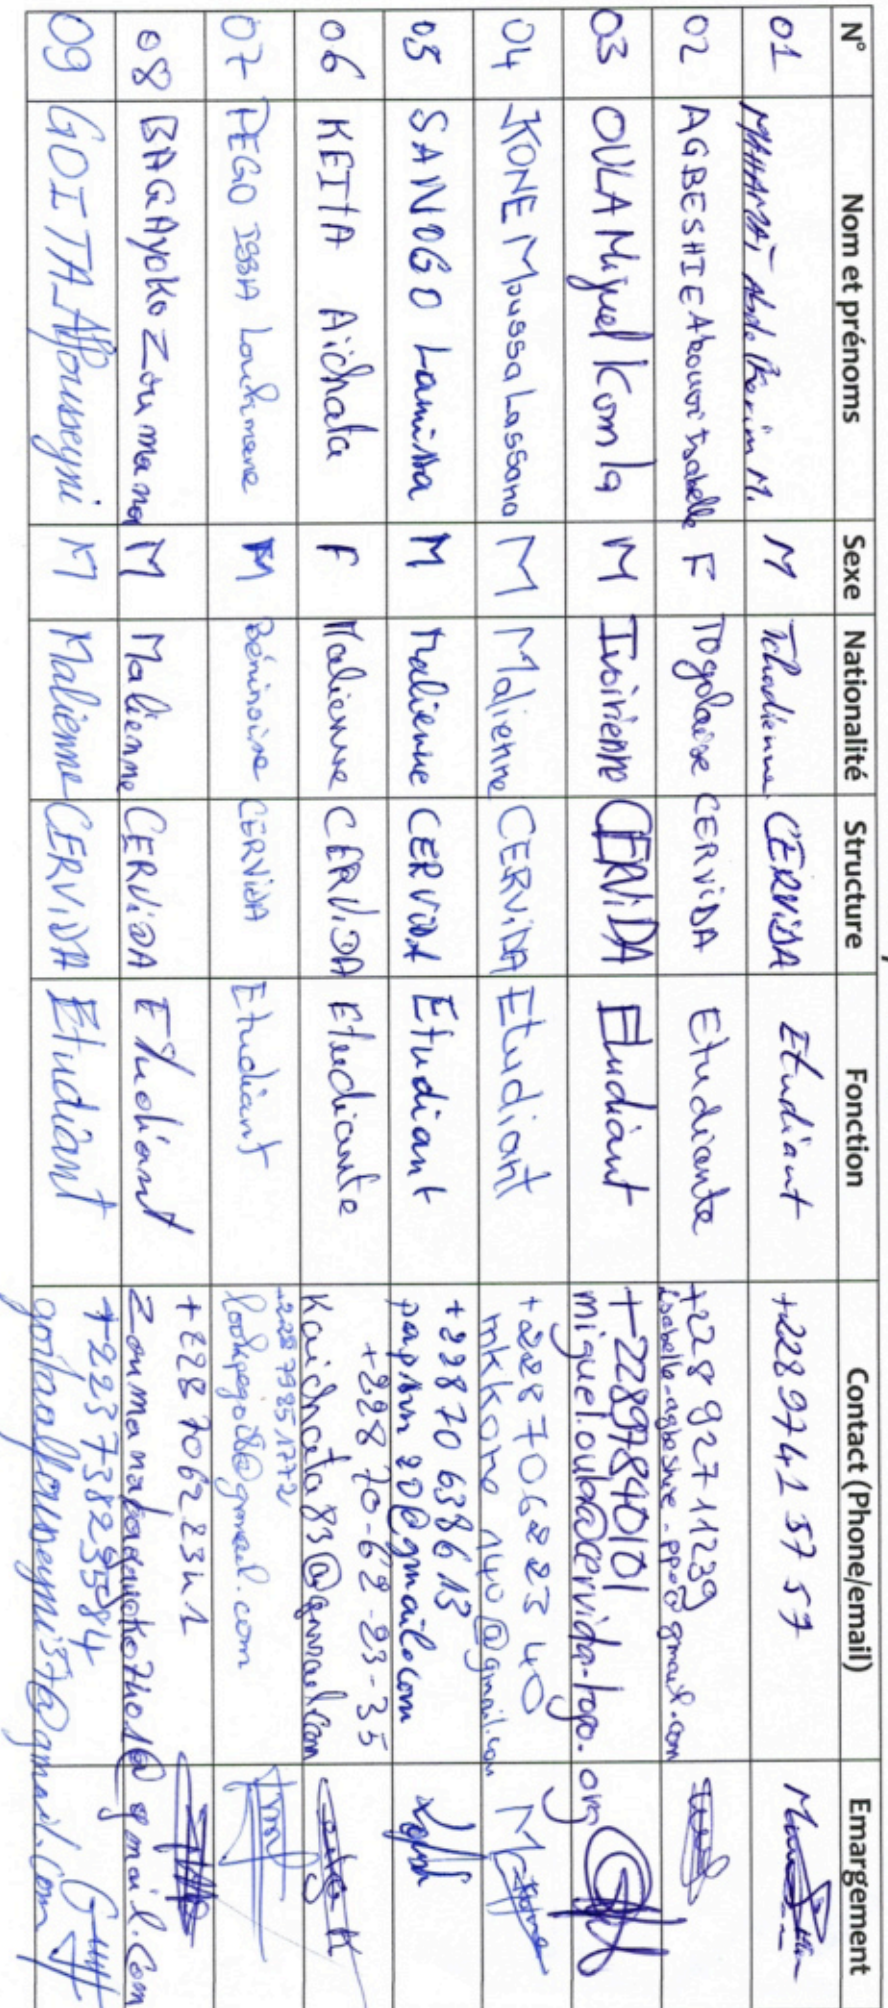 N° Nom et prénoms Sexe Nationalité Structure Fonction Contact (Phone/email) Emargement
01 MAHAMAT Abdel Karim M. M Tchadienne CERViDA Etudiant +228 97 41 57 57
02 AGBESHIE Abouvi Isabelle F Togolaise CERViDA Etudiante +228 92711239
03 OULA Miguel Komla M Ivoirienne CERViDA Etudiant +22897840101
miguel.oula@cervida-togo.org
04 KONE Moussa Lassana M Malienne CERViDA Etudiant +228 70622340
mkkone140@gmail.com
05 SANOGO Lamissa M Malienne CERViDA Etudiant +228 70638613
06 KEITA Aichata F Malienne CERViDA Etudiante +228 70-62-23-35
Kaichata83@gmail.com
07 PEGO ISSA Loukmane M Béninoise CERViDA Etudiant +228 79851772
08 BAGAyoKo Zoumana M Malienne CERViDA Etudiant +228 70622341
09 GOITA Alfousseyni M Malienne CERViDA Etudiant
goitaalfousseyni57@gmail.com